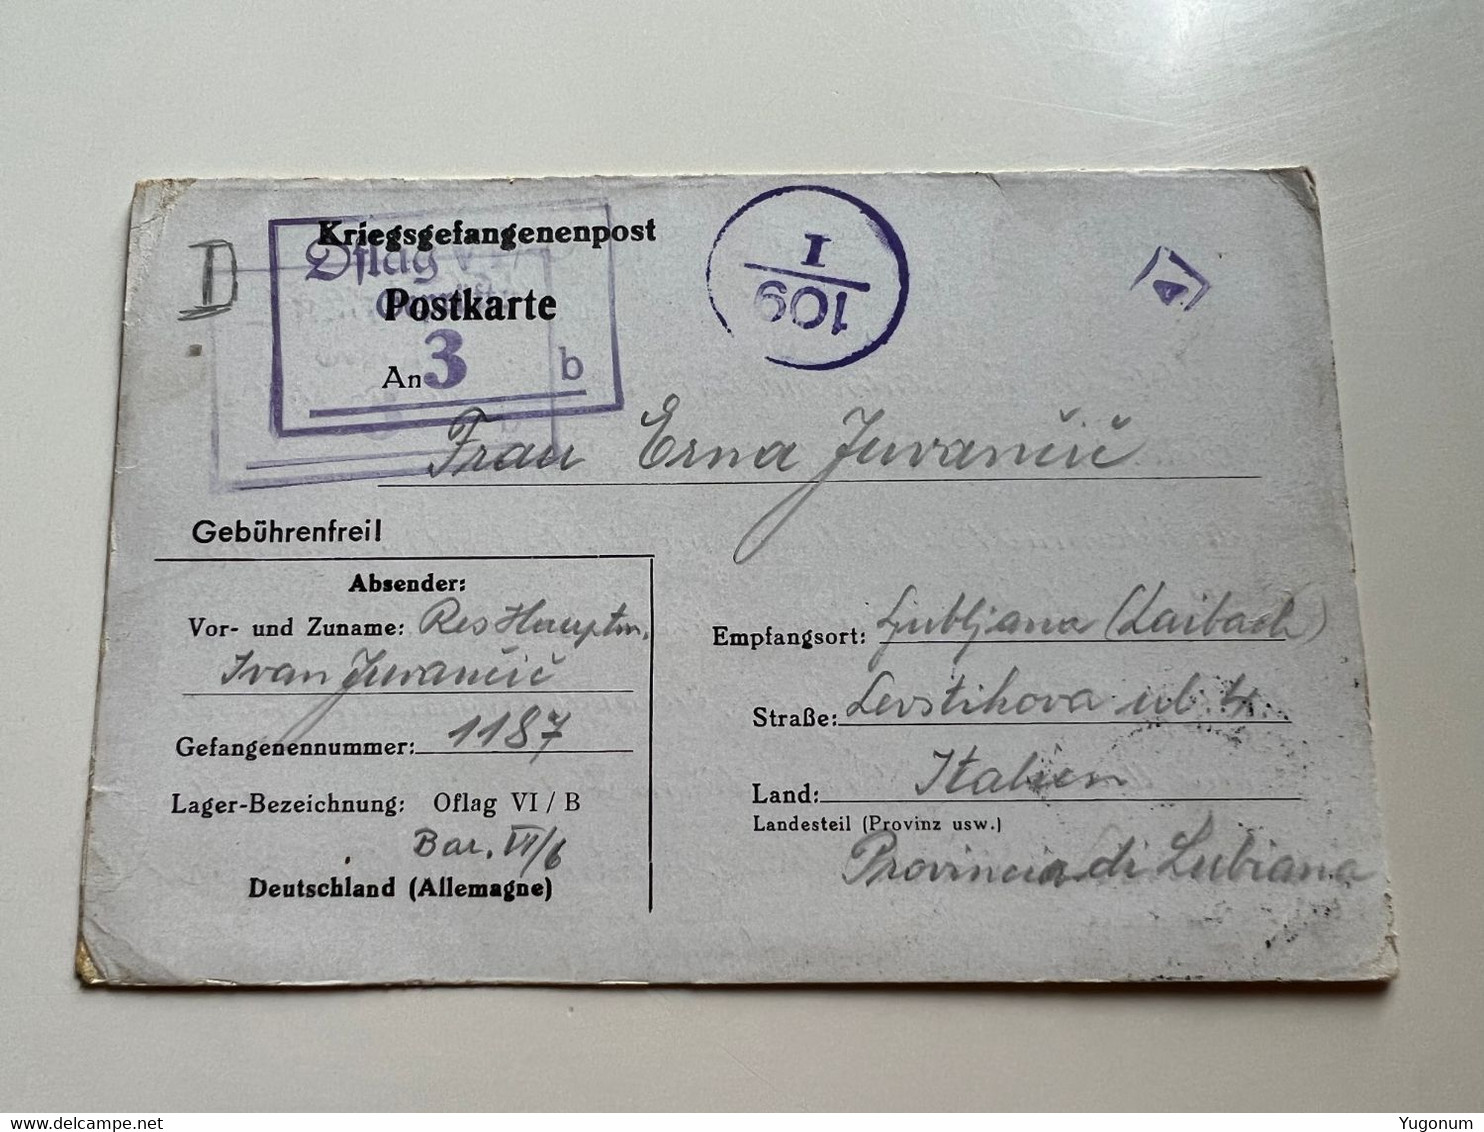 Kriegsgefangenenpost
Oflag VI/
Postkarte
D
An 3 b
I
109
Frau Erna Juvančič
Gebührenfrei!
Absender:
Vor- und Zuname: Res Hauptm.
Ivan Juvančič
Gefangenennummer: 1187
Lager-Bezeichnung: Oflag VI / B
Bar. VI/6
Deutschland (Allemagne)
Empfangsort: Ljubljana (Laibach)
Straße: Levstikova ul. 4.
Land: Italien
Landesteil (Provinz usw.)
Provincia di Lubiana
delcampe.net
Yugonum